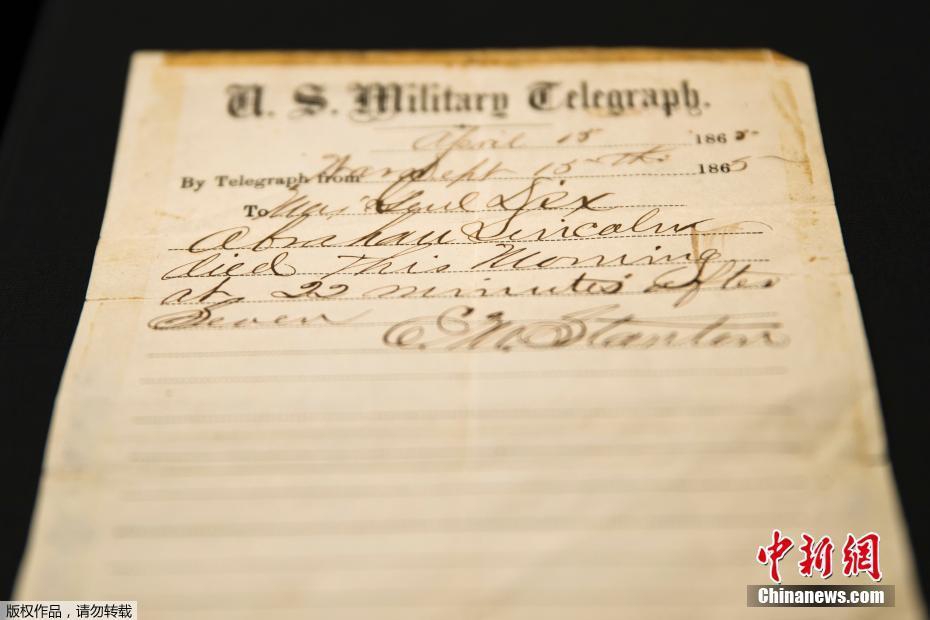 U. S. Military Telegraph.
April 15 1865-
By Telegraph from War Dept 15th 1865
To Maj Genl Dix
Abraham Lincoln
died This Morning
at 22 minutes after
Seven E. M. Stanton
中新网
Chinanews.com
版权作品，请勿转载